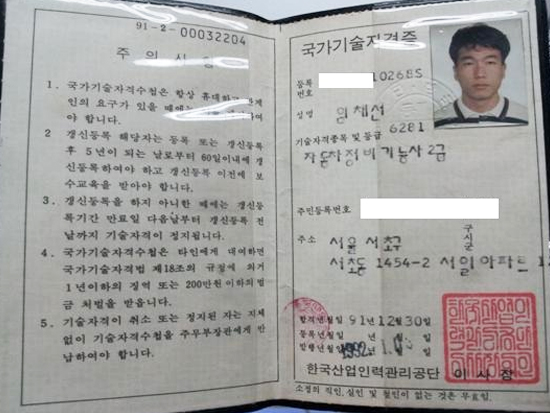 91-2-00032204
주 의 사
1. 국가기술자격수첩은 항상 휴대하고 관계
인의 요구가 있을 때에는 하여
야 합니다.
2. 갱신등록 해당자는 등록 또는 갱신등록
후 5년이 되는 날로부터 60일이내에 갱
신등록하여야 하고 갱신등록 이전에 보
수교육을 받아야 합니다.
3. 갱신등록을 하지 아니한 때에는 갱신등
록기간 만료일 다음날부터 갱신등록 전
날까지 기술자격이 정지됩니다.
4. 국가기술자격수첩은 타인에게 대여하면
국가기술자격법 제18조의 규정에 의거
1년이하의 징역 또는 200만원이하의 벌
금 처벌을 받습니다.
5. 기술자격이 취소 또는 정지된 자는 지체
없이 기술자격수첩을 주무부장관에게 반
납하여야 합니다.
국가기술자격증
등록번호 10268S
성명 임채선
기술자격종목 및 등급 6281
자동차정비기능사2급
주민등록번호
주소 서울 서초구 구시군
서초동 1454-2 서일아파트
합격년월일 91년12월30일
등록년월일
발행년월일 1992
한국산업인력관리공단 이사장
소정의 직인, 실인 및 철인이 없는 것은 무효임.